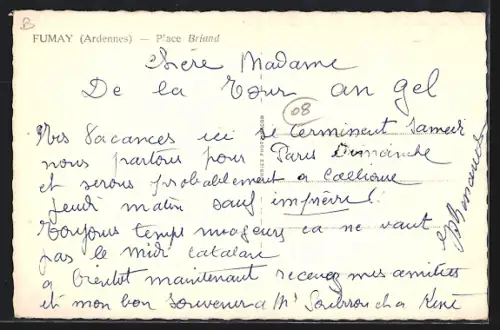 B
FUMAY (Ardennes) — Place Briand
Chère Madame
De la Tour an gel
08
Mes Vacances ici se terminent Samedi
nous partons pour Paris Dimanche
et serons probablement a Collioure
Jeudi matin sauf imprévu!
Toujours temps mageur ca ne vaut
pas le midi catalan
a bientot maintenant recevez mes amitiés
et mon bon souvenir a Mr René